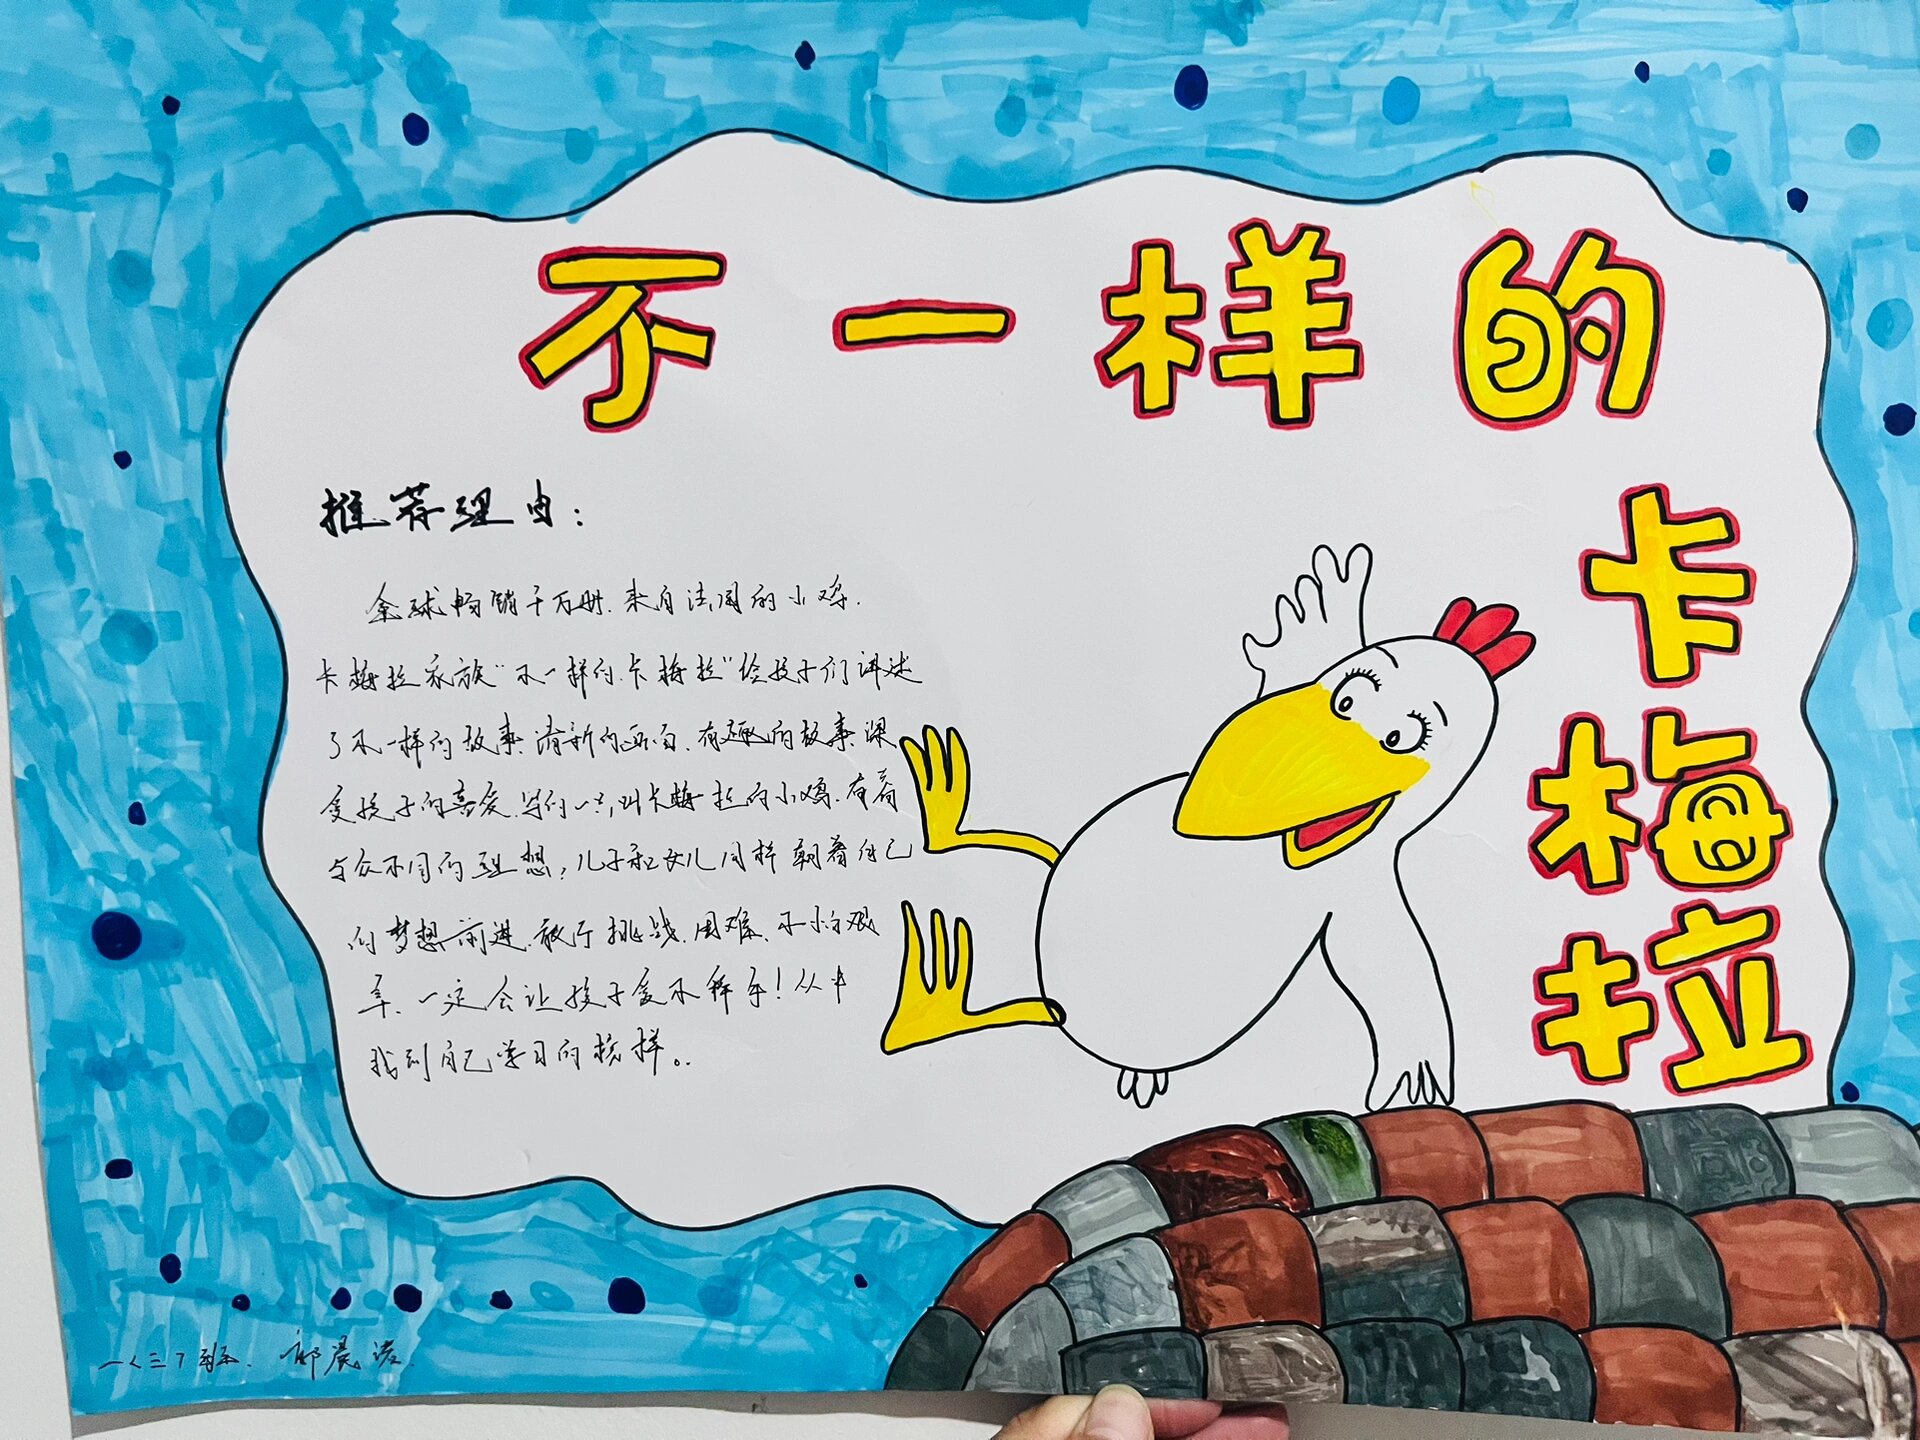 不一样的
卡梅拉
推荐理由：
全球畅销千万册.来自法国的小鸡.
卡梅拉家族“不一样的卡梅拉”给孩子们讲述
了不一样的故事.清新的画面.有趣的故事深
受孩子的喜爱.写的一只叫卡梅拉的小鸡.有着
与众不同的理想,儿子和女儿同样朝着自己
的梦想前进.敢于挑战.困难.不怕艰
辛.一定会让孩子爱不释手!从中
找到自己学习的榜样。
一〈三〉班.晨